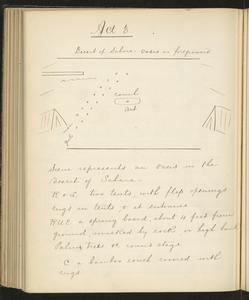 Act 3
Desert of Sahara - Oasis in foreground
couch
Scene represents an Oasis in the
Desert of Sahara -
R & L two tents, with flap openings
rugs in tents & at entrance
R.U.E. a spring board, about 4 feet from
ground, masked by rock or high bank
Palm trees
C a bamboo couch covered with
rugs